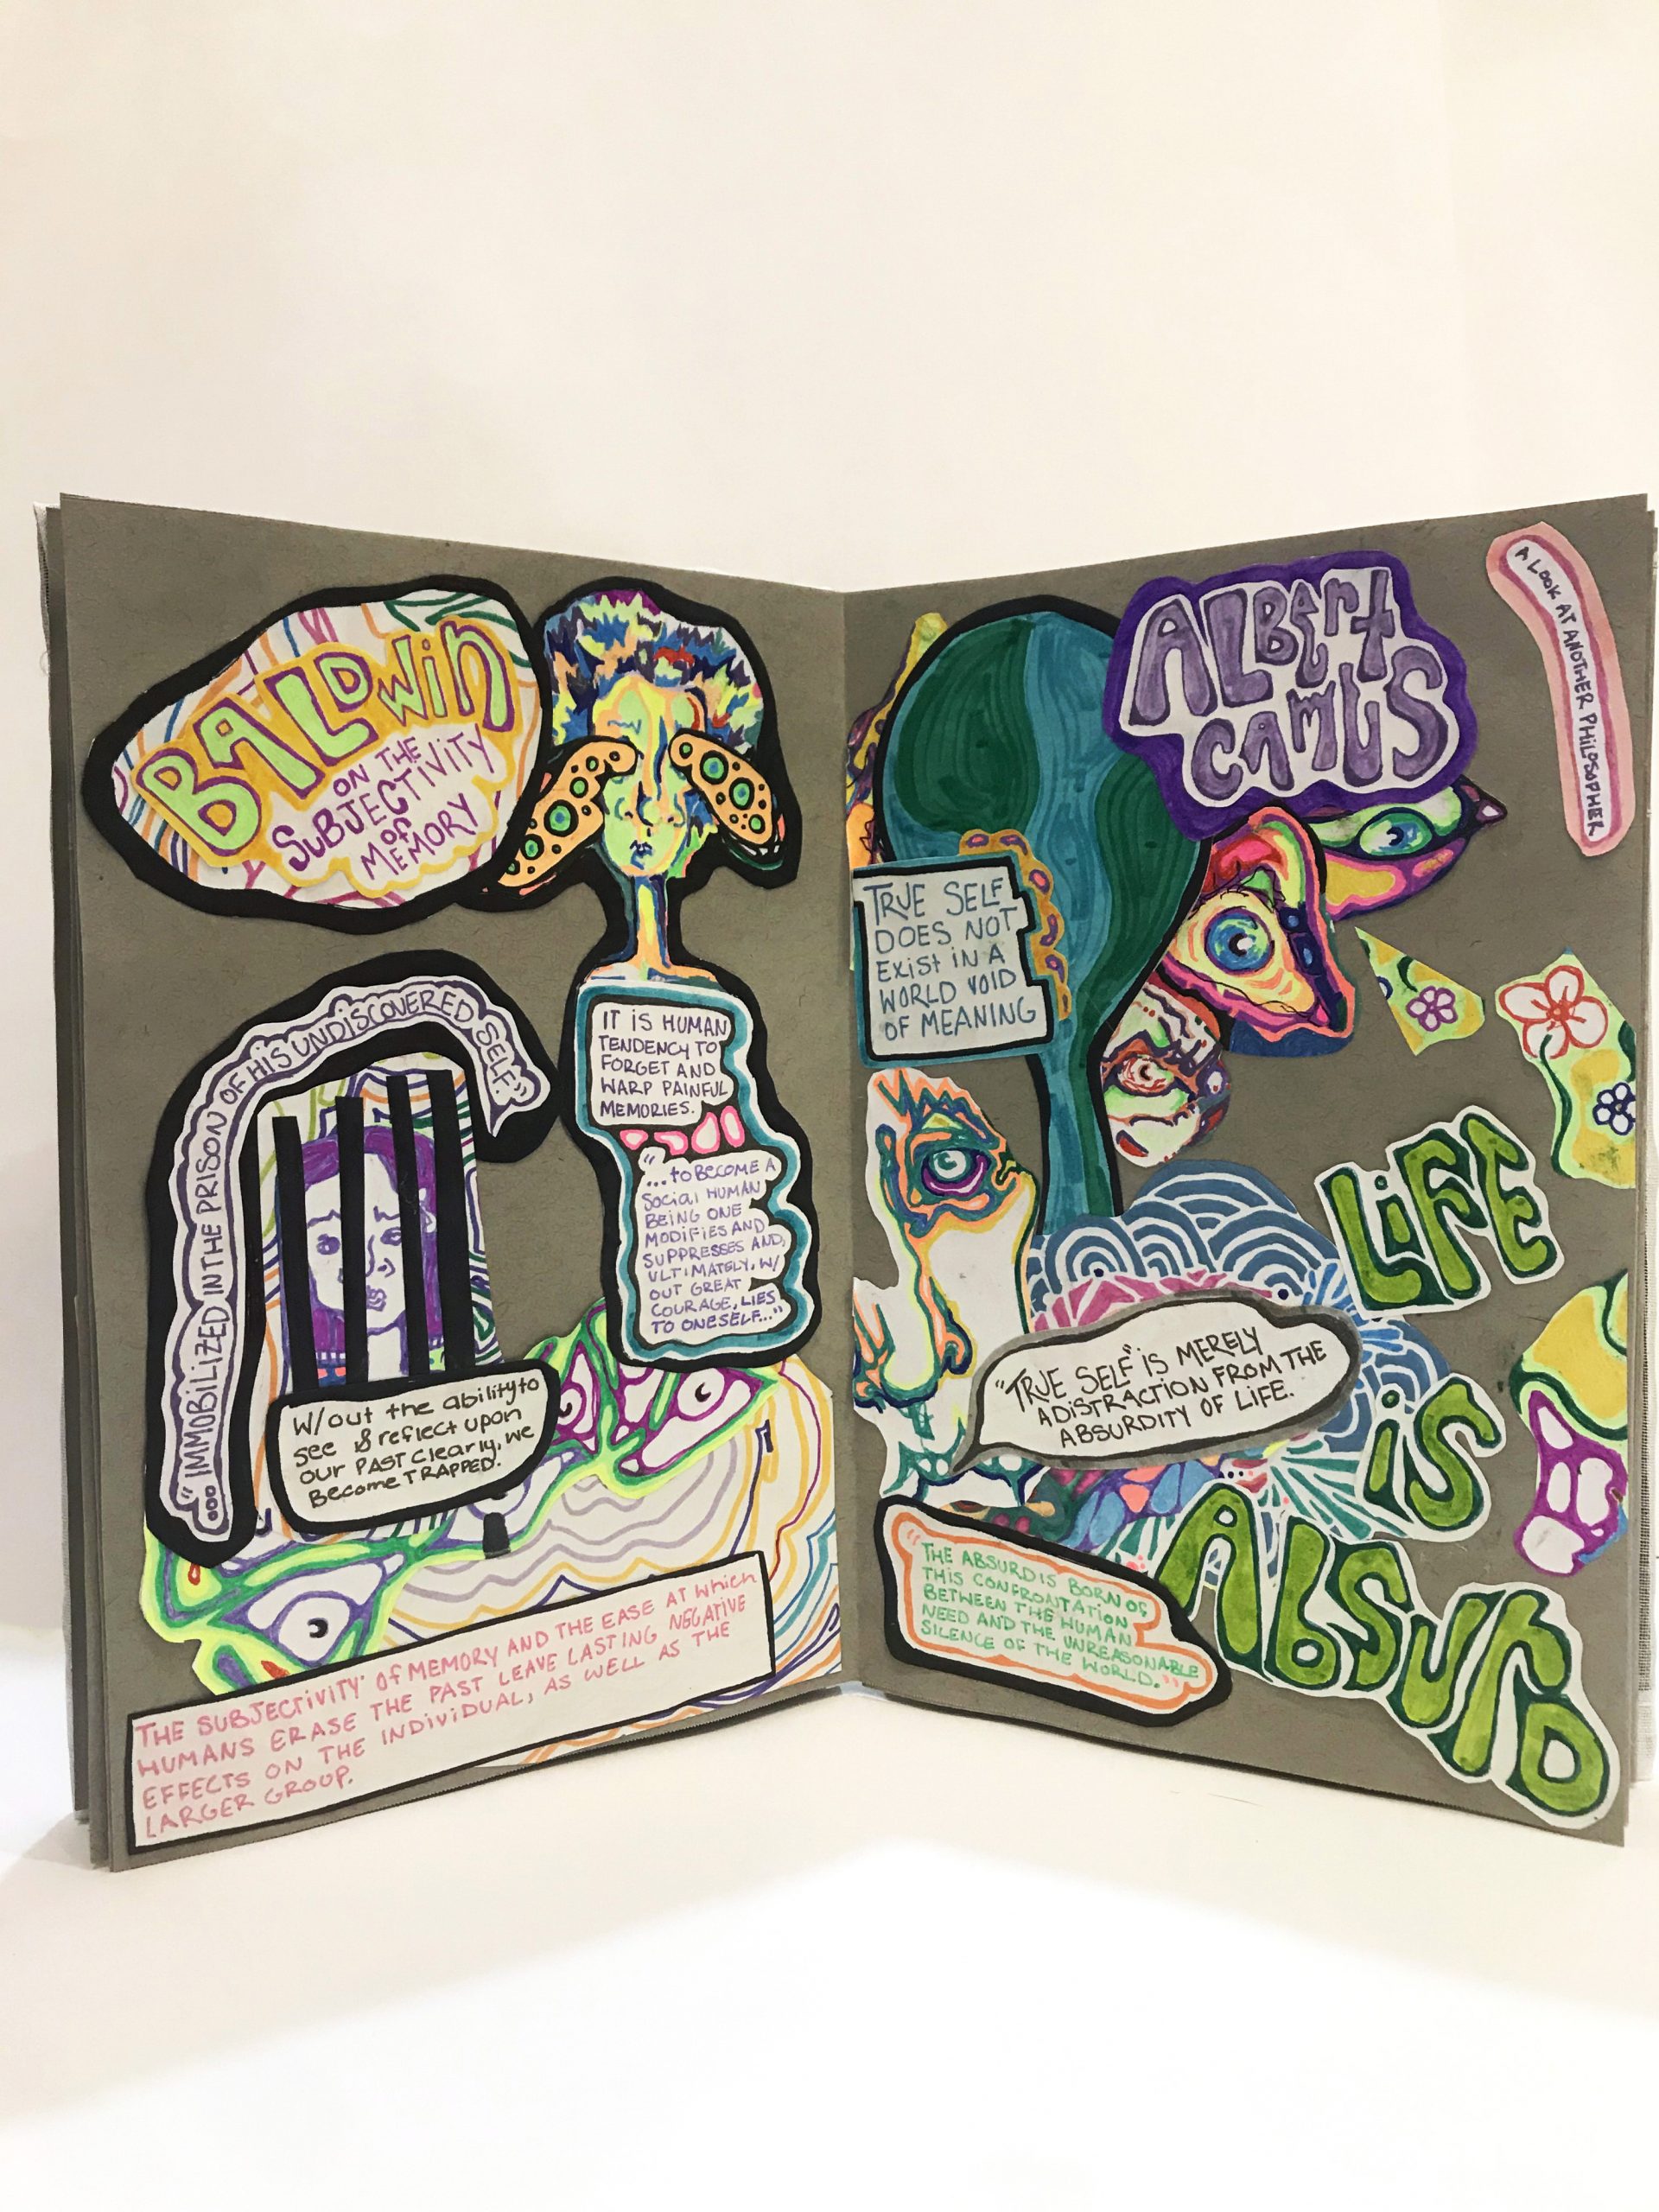 BALDWIN
ON THE
SUBJECTIVITY
OF
MEMORY
"... IMMOBILIZED IN THE PRISON OF HIS UNDISCOVERED SELF."
W/out the ability to
see & reflect upon
our PAST clearly, we
Become TRAPPED.
IT IS HUMAN
TENDENCY TO
FORGET AND
WARP PAINFUL
MEMORIES.
"...to BECOME A
Social HUMAN
BEING ONE
MODIFIES AND
SUPPRESSES AND,
ULTIMATELY, W/
OUT GREAT
COURAGE, LIES
TO ONESELF..."
THE SUBJECTIVITY OF MEMORY AND THE EASE AT WHICH
HUMANS ERASE THE PAST LEAVE LASTING NEGATIVE
EFFECTS ON THE INDIVIDUAL, AS WELL AS THE
LARGER GROUP.
ALBERT
CAMUS
A LOOK AT ANOTHER PHILOSOPHER
TRUE SELF
DOES NOT
EXIST IN A
WORLD VOID
OF MEANING
"TRUE SELF" IS MERELY
A DISTRACTION FROM THE
ABSURDITY OF LIFE.
LIFE
is
ABSURD
"THE ABSURD IS BORN OF
THIS CONFRONTATION
BETWEEN THE HUMAN
NEED AND THE UNREASONABLE
SILENCE OF THE WORLD."